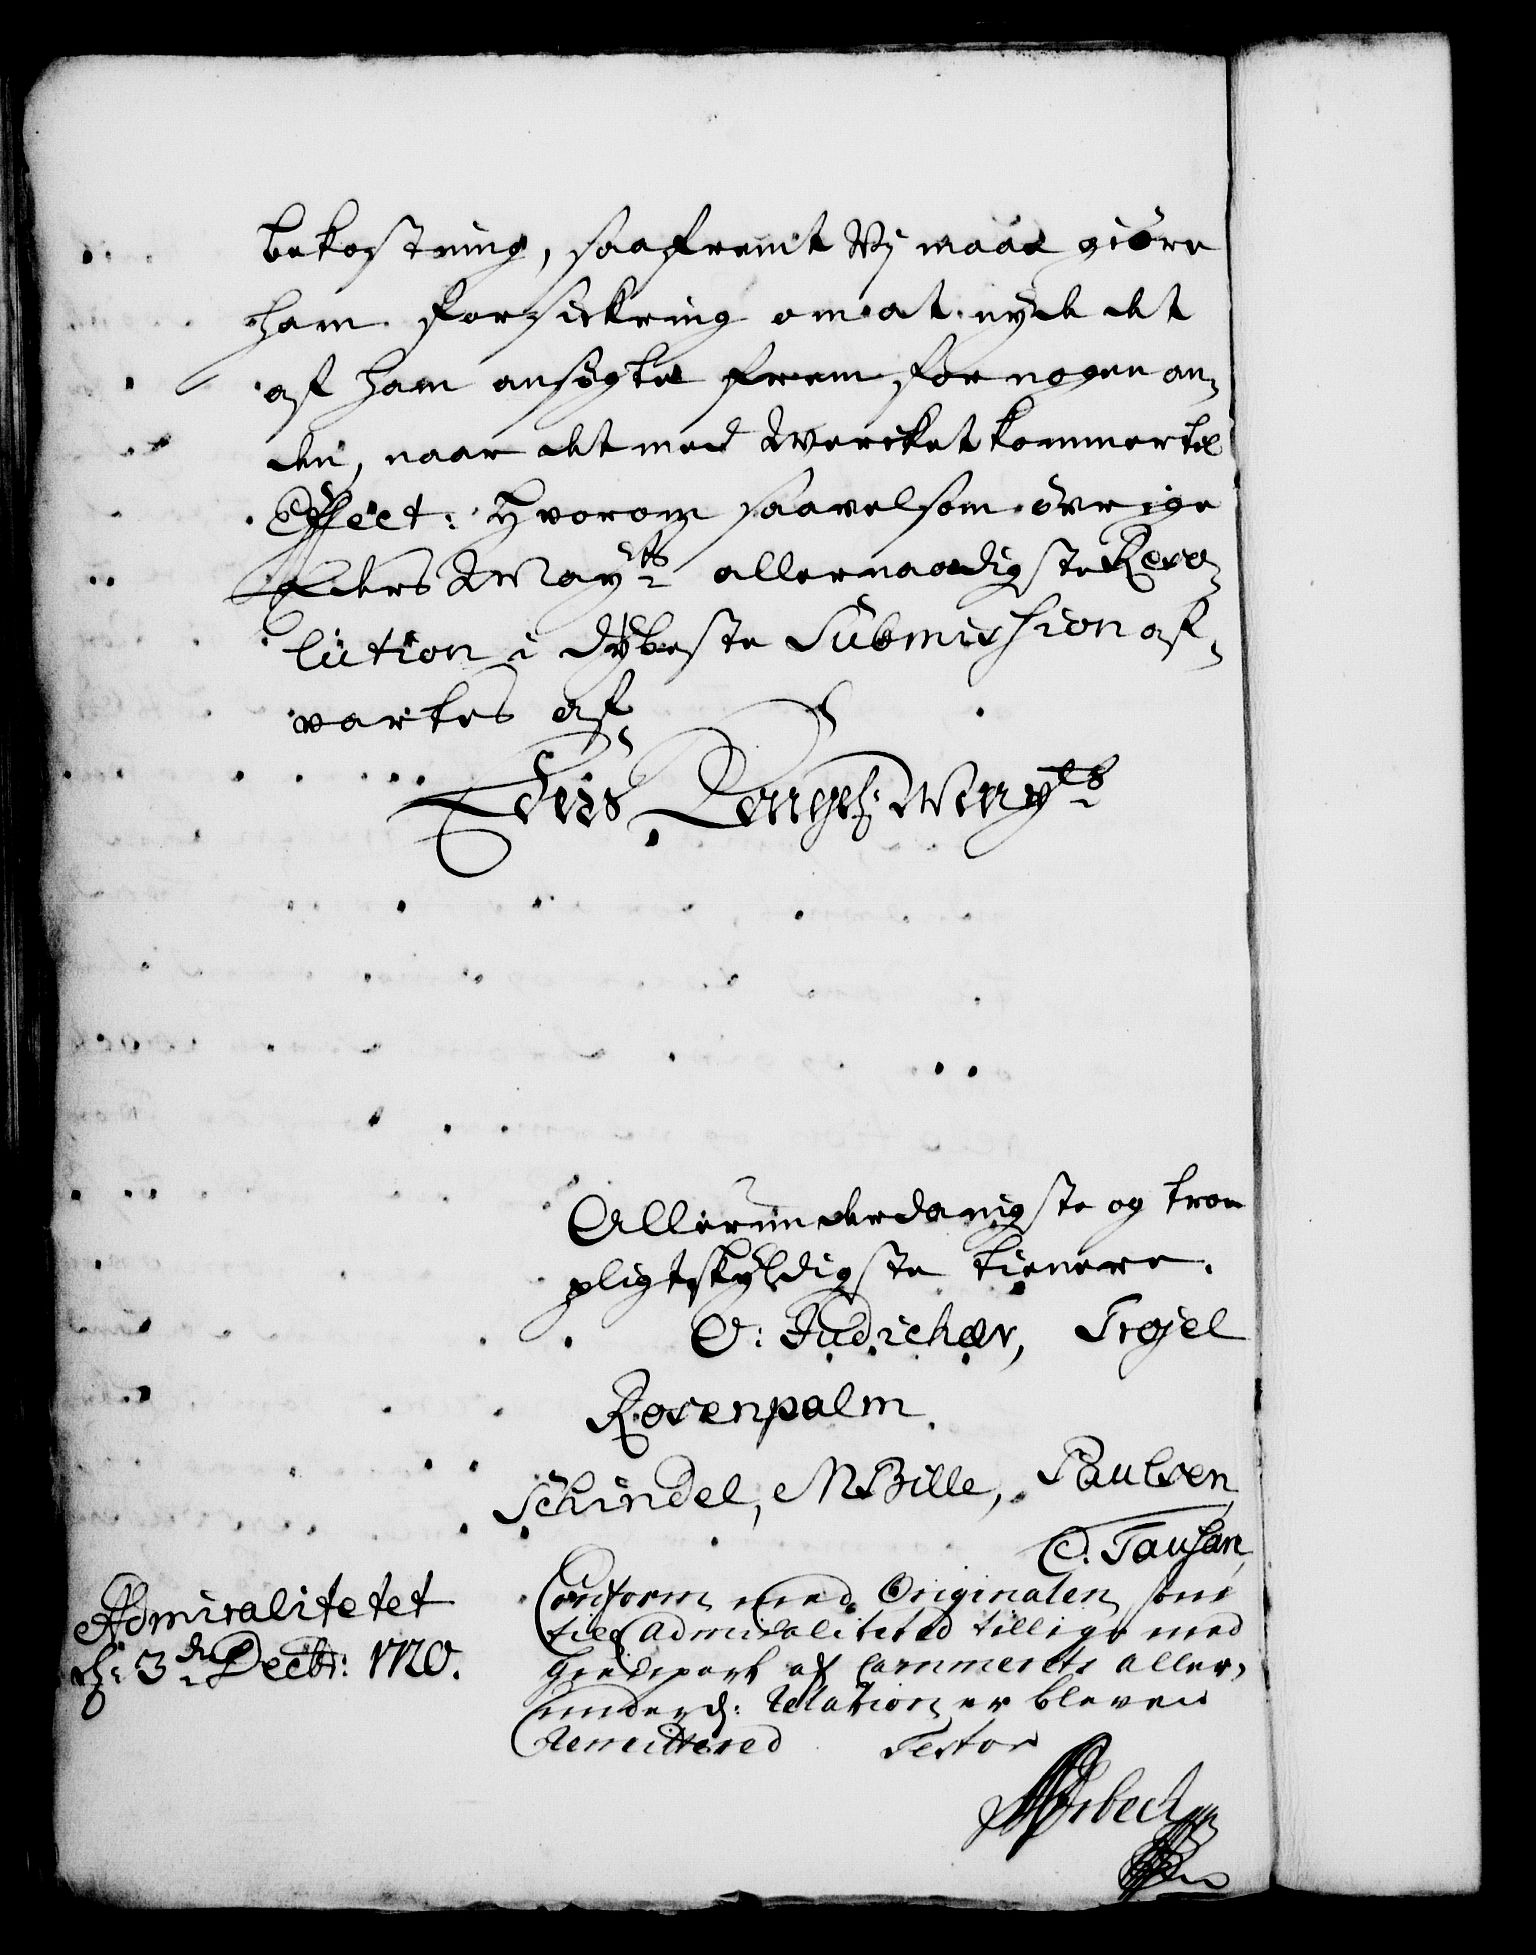 bekostning, saafremt Wj maae giöre
ham forsickring om at nyde det
af ham ansögte frem for nogen an¬
den, naar det med Wercket kommer til
Effect: Hvorom saavelsom övrige
Eders May.ts allernaadigste Reso¬
lution i dybeste Submission af¬
vartes af
Eders Kongel: May.ts
Allerunderdanigste og troe
pligtskyldigste tienere.
O: Judichær, Trojel
Rosenpalm.
Schindel, MBille, Paulsen,
C. Tausan,
Admiralitetet
d: 3.de Decbr: 1720.
Conform med Originalen som
til Admiralitetet tillige med
af Cammerets aller¬
underd: Relation er bleven
Remittered Testor